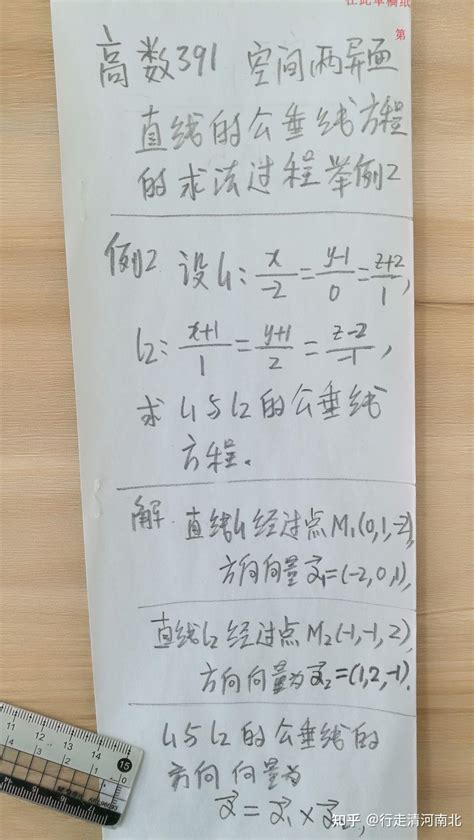 在此草稿纸
第
高数391 空间两异面
直线的公垂线方程
的求法过程举例2
例2 设l1: x/-2 = y-1/0 = z+2/1,
l2: x+1/1 = y+1/2 = z-2/-1,
求 l1与l2的公垂线
方程。
解 直线l1经过点M1(0,1,-2),
方向向量 s1=(-2,0,1),
直线l2经过点M2(-1,-1,2),
方向向量为s2=(1,2,-1).
l1与l2的公垂线的
方向向量为
s = s1 × s2,
15 14 13 12 11
知乎 @行走清河南北